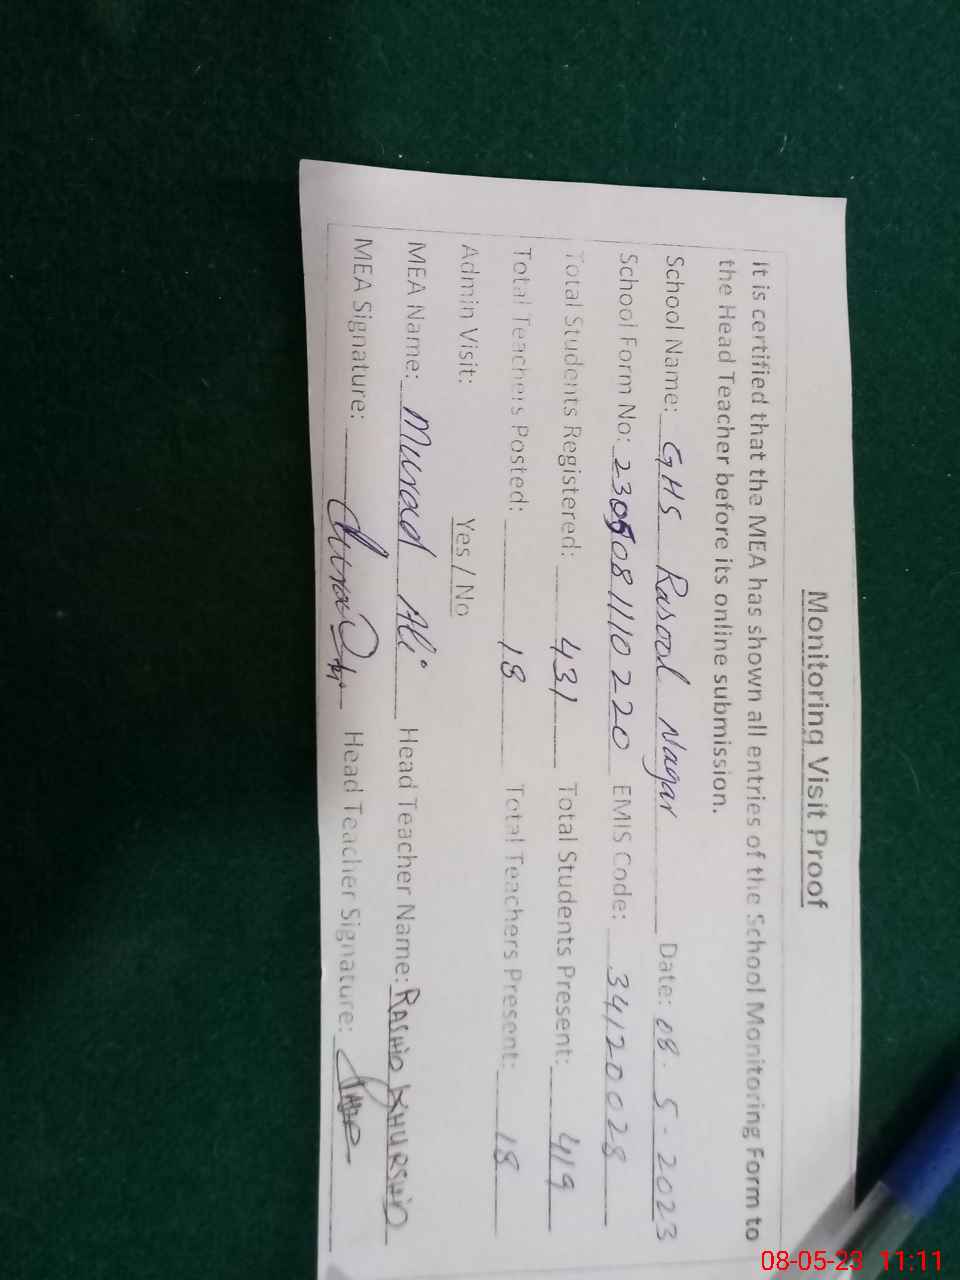 Monitoring Visit Proof
It is certified that the MEA has shown all entries of the School Monitoring Form to
the Head Teacher before its online submission.
School Name: GHS Rasool Nagar Date: 08-5-2023
School Form No: 2305081110220 EMIS Code: 34120028
Total Students Registered: 431 Total Students Present: 419
Total Teachers Posted: 18 Total Teachers Present: 18
Admin Visit: Yes / No
MEA Name: Murad Ali Head Teacher Name: RASHID KHURSHID
MEA Signature: Head Teacher Signature:
08-05-23 11:11